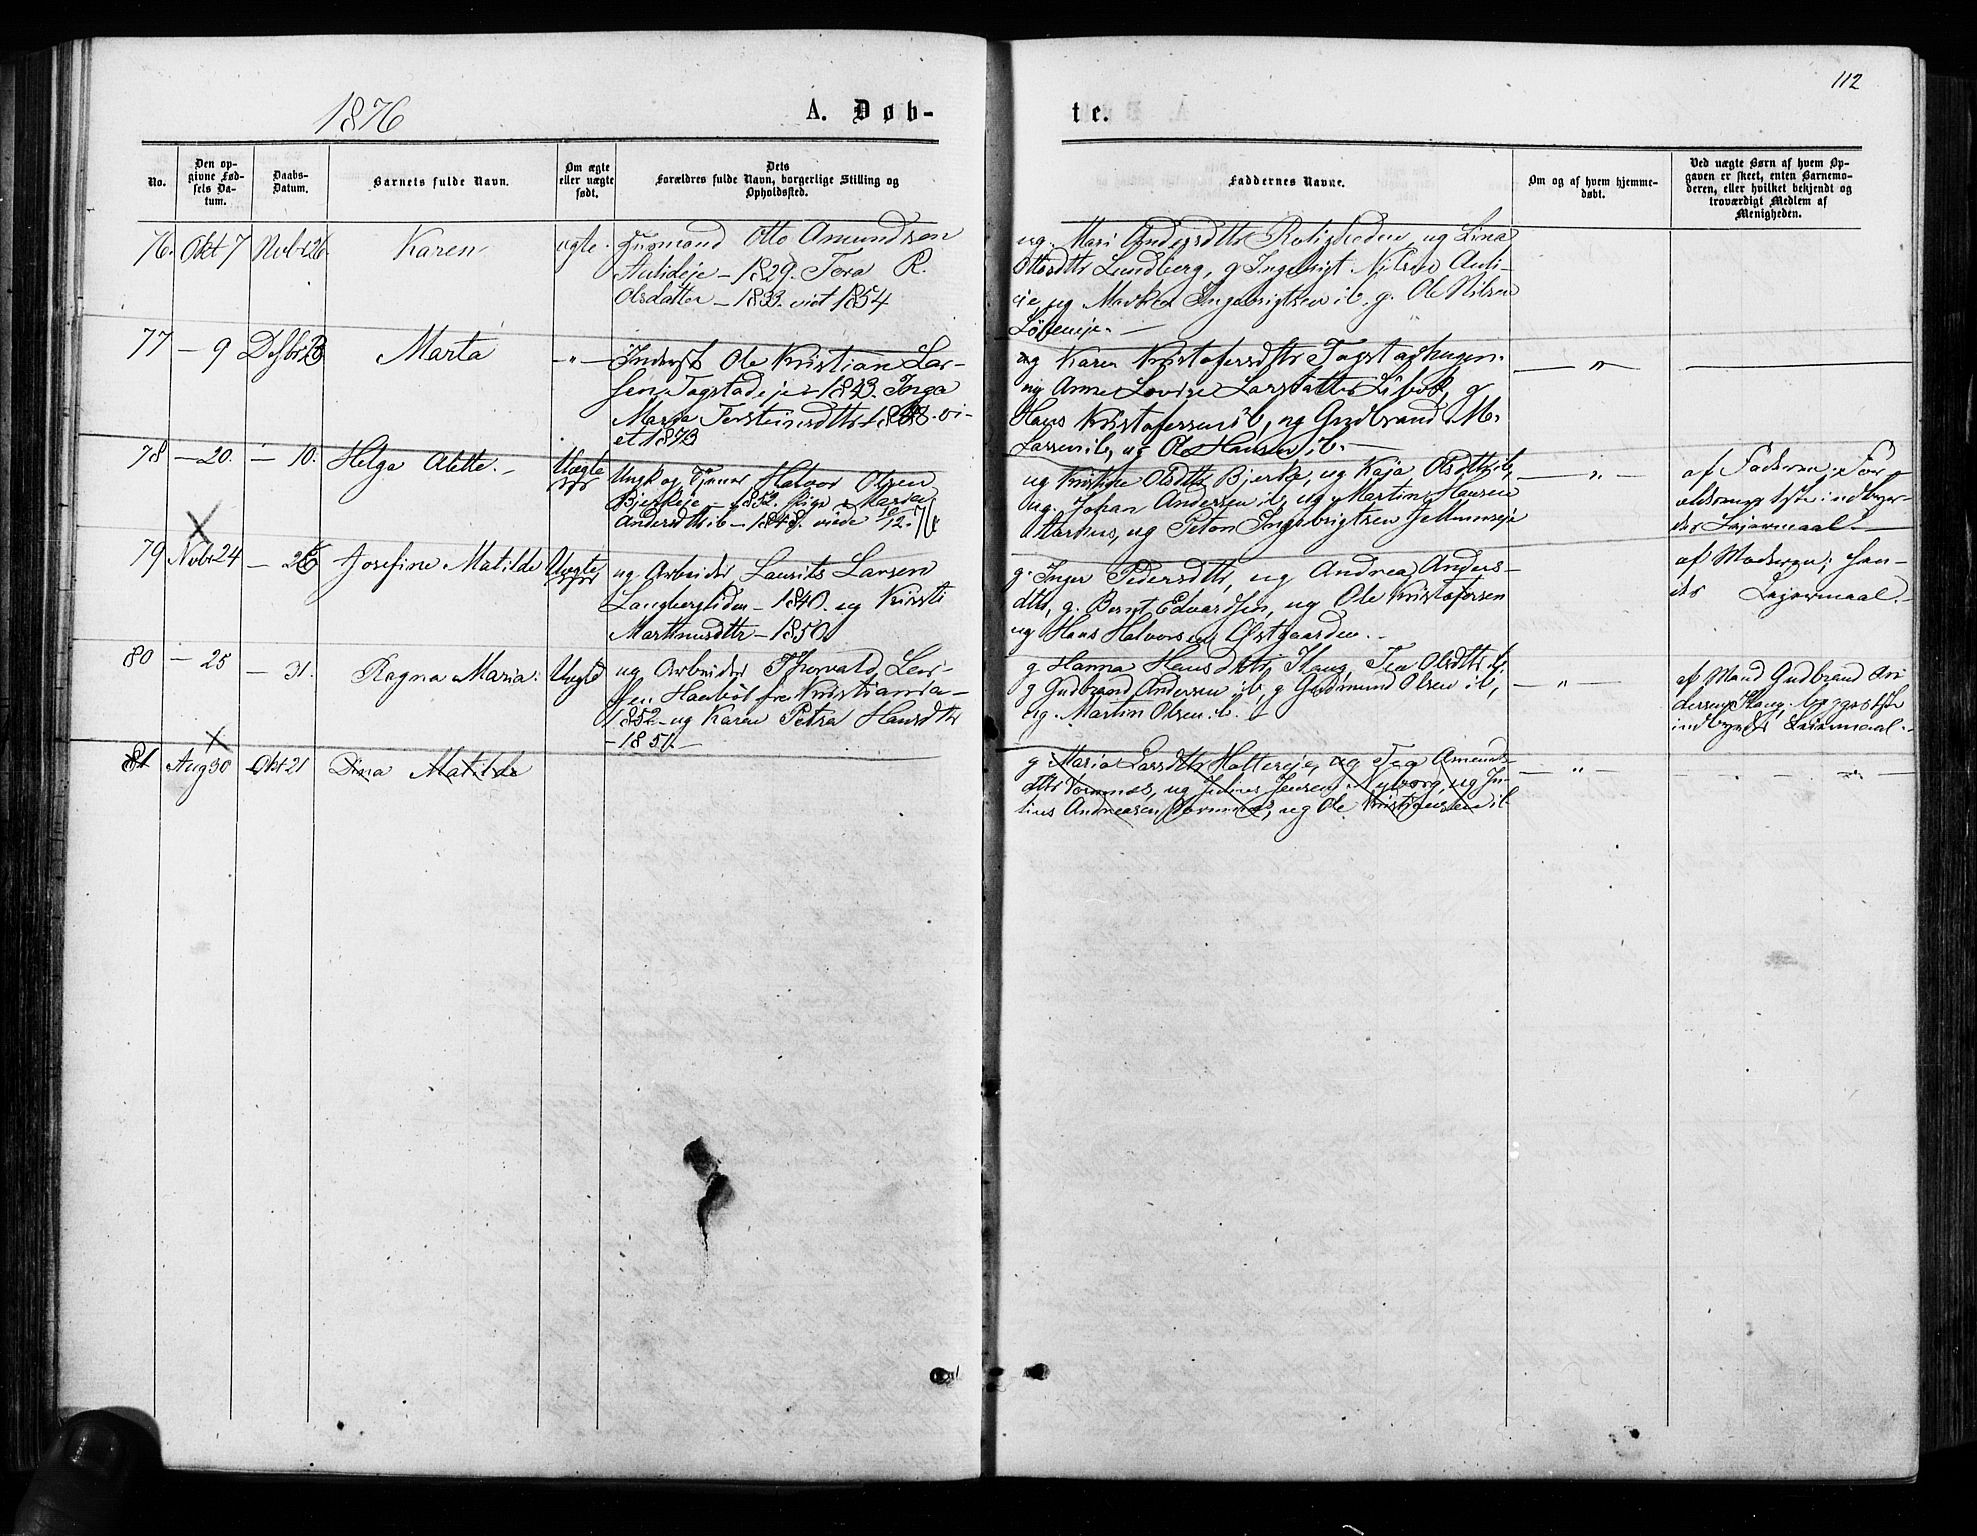 112
1876
A. Døb-
te.
No.
Den op-
givne Fød-
sels Da-
tum.
Daabs-
Datum.
Barnets fulde Navn.
Om ægte
eller uægte
født.
Dets
Forældres fulde Navn, borgerlige Stilling og
Opholdssted.
Faddernes Navne.
Om og af hvem hjemme-
døbt.
Ved uægte Børn af hvem Op-
gaven er skeet, enten Barnemo-
deren, eller hvilket bekjendt og
troværdigt Medlem af
Menigheden.
76. Okt 7 Novbr 26. Karen ægte. Husmand Otto Amundsen
Aulieeje - 1829. Tora R.
Olsdatter - 1833. viet 1854
ug. Mari Andersdttr Roligheden, ug Lina
Ottosdttr Lundberg, g Ingebrigt Nilsen Auli-
eie, ug Ingebrigtsen ib. g. Ole Nilsen
77 - 9 Marta - " - Inderst Ole Kristian Lar-
sen Tagstadeje - 1843. Inga
Maria Torsteinsdttr - 1848. vi-
et 1873
ug Karen Kristofersdttr Tagstadhagen.
ug Anne Lovise Larsdatter, g
Hans Kristofersen ib, ug Gudbrand M.
Larsen ib, ug Ole Hansen ib. -
- " -
78 - 20. - 10. Helga Alette. - Uægte
Ungk og Tjener Halvor Olsen
Bjerkeje - 1852. Pige Maria
Andersdttr ib - 1848. viede 10/12. 76
ug Kristine Olsdttr Bjerke, ug Kaja Olsdttr ib,
ug. Johan Andersen ib, ug Martin Hansen
ug Peter Ingebrigtsen
- " -
af Faderen; For-
ældrenes 1ste indbyr-
des Lejermaal. -
X
79 Novbr 24 - 26 Josefine Matilde Uægte
ug Arbeider Laurits Larsen
Langbergliden - 1840. ug Kirsti
Martinusdttr - 1850
g. Inger Pedersdttr, ug Andrea Anders-
dttr, g. Bernt Edvardsen, ug Ole Kristofersen
ug Hans Halvorsen Østgaarden. -
af Moderen; hen-
des Lejermaal. -
80 - 25 - 31. Ragna Maria. Uægte
ug Arbeider Thorvald
fra Kristiania -
1852 - ug Karen Petra Hansdttr
- 1851. -
g Hanna Hansdttr Haug, Tea Olsdttr ib,
g Gudbrand Andersen ib, g Gudmund Olsen ib,
ug. Martin Olsen ib. -
- " -
af Mand Gudbrand An-
dersen Haug. 1ste
indbyrdes Leiermaal. -
X
81 Aug 30 Okt 21 Dina Matilde
g Maria Larsdttr Holtereje, ug Tea Amunds-
dttr Vormnæs, ug Julius Jensen Nyborg, ug Ju-
lius Andreasen Vormnæs, ug Ole Kristiansen ib
- " -
- " -